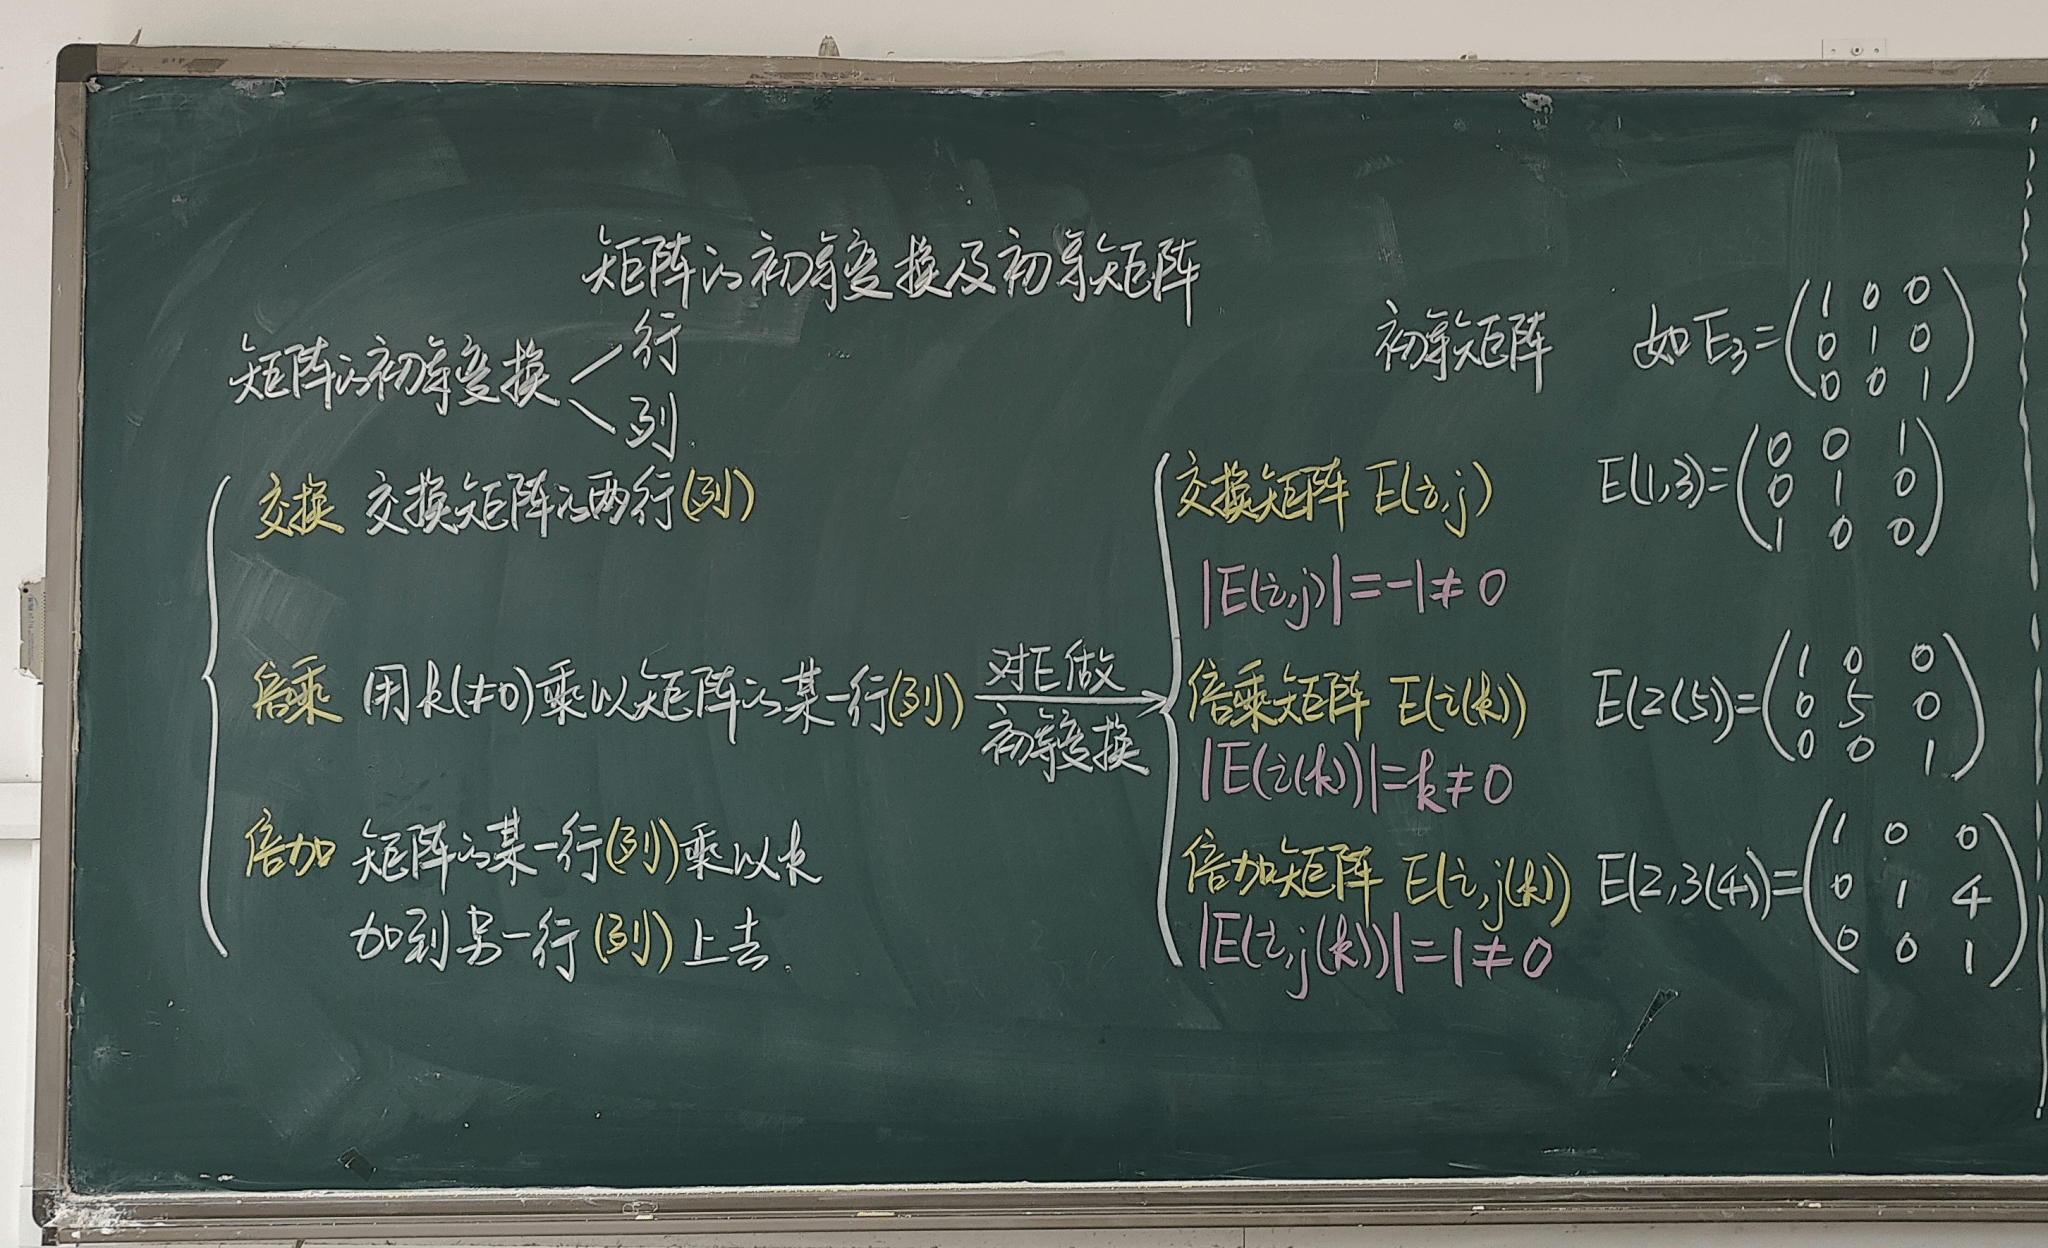 矩阵的初等变换及初等矩阵
矩阵的初等变换
行
列
交换 交换矩阵的两行(列)
倍乘 用k(≠0)乘以矩阵的某一行(列)
倍加 矩阵的某一行(列)乘以k
加到另一行(列)上去.
对E做
初等变换
初等矩阵 如E₃=
1 0 0
0 1 0
0 0 1
交换矩阵 E(i,j) E(1,3)=
0 0 1
0 1 0
1 0 0
|E(i,j)|=-1≠0
倍乘矩阵 E(i(k)) E(2(5))=
1 0 0
0 5 0
0 0 1
|E(i(k))|=k≠0
倍加矩阵 E(i,j(k)) E(2,3(4))=
1 0 0
0 1 4
0 0 1
|E(i,j(k))|=1≠0